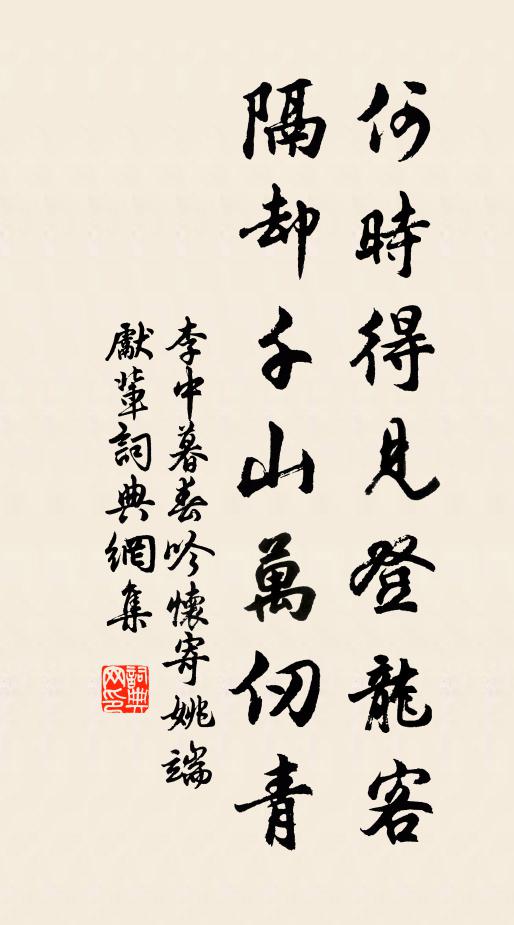 何時得見登龍客
隔却千山萬仞青
李中暮春吟懷寄姚端
獻輩詞典網集
詞典
网印